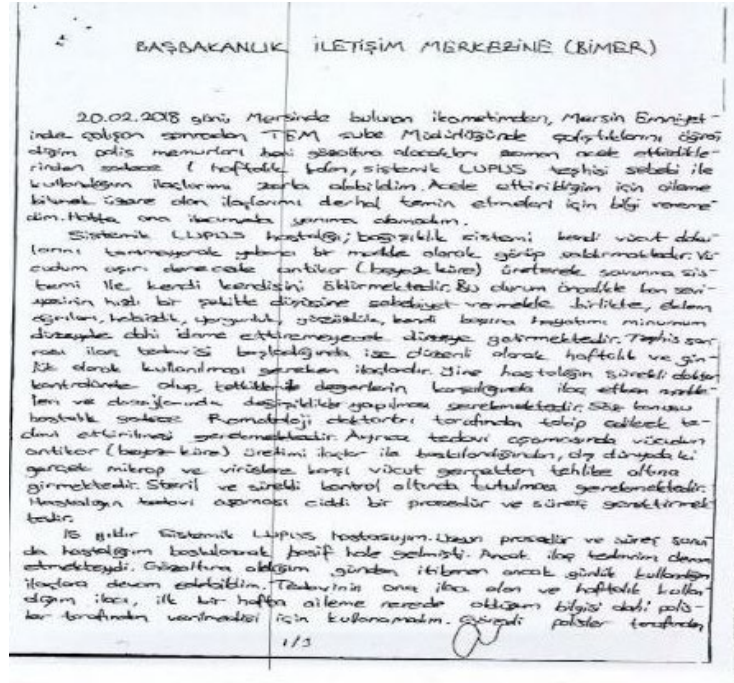 BAŞBAKANLIK İLETİŞİM MERKEZİNE (BİMER)
20.02.2018 günü Mersinde bulunan ikametimden, Mersin Emniyet-
inde çalışan sonradan TEM şube Müdürlüğünde çalıştıklarını öğren
diğim polis memurları beni gözaltına alacakları zaman acele ettirdikle-
rinden sadece 1 haftalık kalan, sistemik LUPUS teşhisi sebebi ile
kullandığım ilaçlarımı zorla alabildim. Acele ettirildiğim için aileme
bitmek üzere olan ilaçlarımı derhal temin etmeleri için bilgi vereme-
dim. Hatta ana ilacımıda yanıma alamadım.
Sistemik LUPUS hastalığı; bağışıklık sistemi kendi vücut doku-
larını tanımayarak yabancı bir madde olarak görüp saldırmaktadır. Vü-
cudum aşırı derecede antikor (beyaz küre) üreterek savunma sis-
temi ile kendi kendisini öldürmektedir. Bu durum öncelikle kan sevi-
yesinin hızlı bir şekilde düşüşüne sebebiyet vermekle birlikte, eklem
ağrıları, halsizlik, yorgunluk, kendi başına hayatımı minumum
düzeyde dahi idame ettiremeyecek düzeye getirmektedir. Teşhis son-
rası ilaç tedavisi başladığında ise düzenli olarak haftalık ve gün-
lük olarak kullanılması gereken ilaçlardır. Yine hastalığın sürekli doktor
kontrolünde olup, tetkiklerle değerlerin karşılığında ilaç etken madde-
leri ve dozajlarında değişiklikler yapılması gerekmektedir. Söz konusu
hastalık sadece Romatoloji doktorları tarafından takip edilerek te-
davi ettirilmesi gerekmektedir. Ayrıca tedavi aşamasında vücudun
antikor (beyaz küre) üretimi ilaçlar ile baskılandığından, dış dünyadaki
gerçek mikrop ve virüslere karşı vücut gerçekten tehlike altına
girmektedir. Steril ve sürekli kontrol altında tutulması gerekmektedir.
Hastalığın tedavi aşaması ciddi bir prosedür ve süreç gerektirmek
tedir.
15 yıldır Sistemik LUPUS hastasıyım. Uzun prosedür ve süreç sonun
da hastalığım baskılanarak pasif hale gelmişti. Ancak ilaç tedavim devam
etmekteydi. Gözaltına aldığım günden itibaren ancak günlük kullandığım
ilaçlara devam edebildim. Tedavinin ana ilacı olan ve haftalık kullan
dığım ilacı, ilk bir hafta aileme nerede olduğum bilgisi dahi polis-
ler tarafından verilmediği için kullanamadım. polisler tarafından
1/3